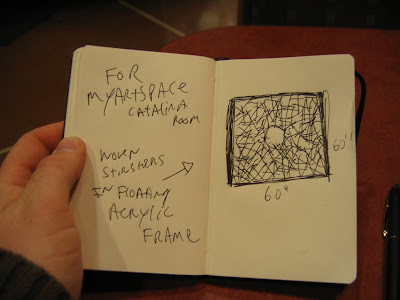 FOR
MYARTSPACE
CATALINA
ROOM
WOVEN
STIRSTERS
IN FLOATING
ACRYLIC
FRAME
60"
60"